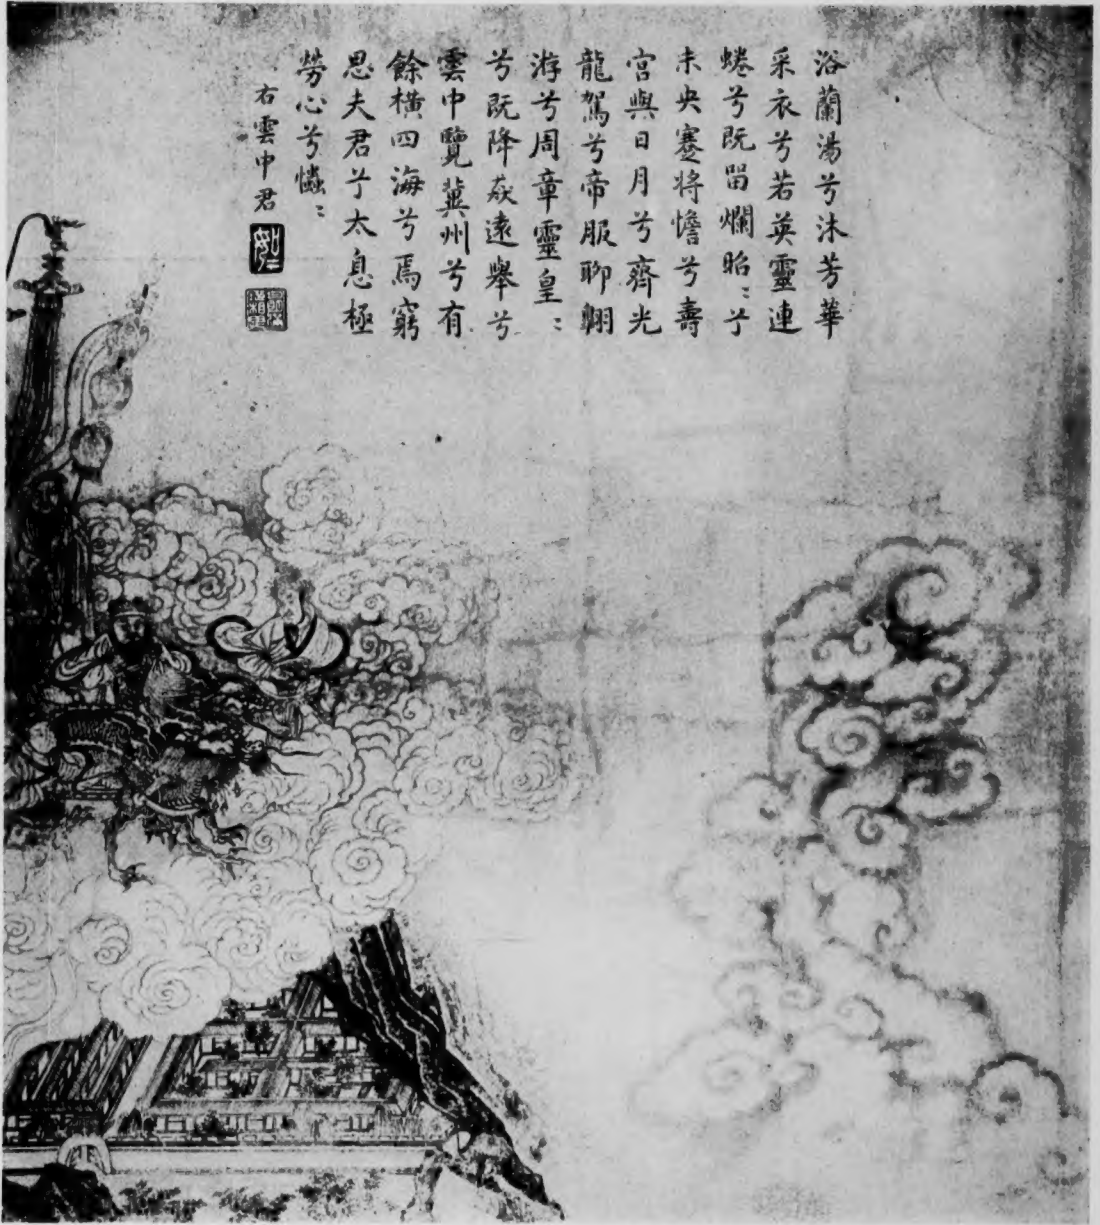 浴蘭湯兮沐芳華
采衣兮若英靈連
蜷兮既畱爛昭〻兮
未央蹇將憺兮壽
宮與日月兮齊光
龍駕兮帝服聊翱
游兮周章靈皇〻
兮既降猋遠舉兮
雲中覽冀州兮有
餘橫四海兮焉窮
思夫君兮太息極
勞心兮爞〻
右雲中君